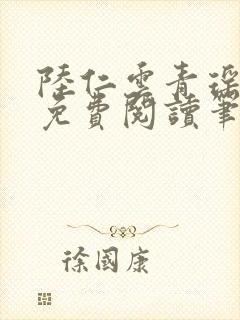 陸仁雲青瑶
免費閱讀筆
徐國康